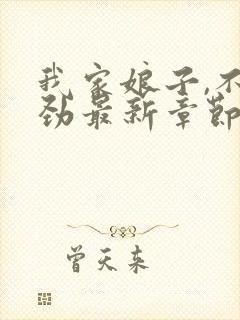 我家娘子,不
劲最新章节
曾天来